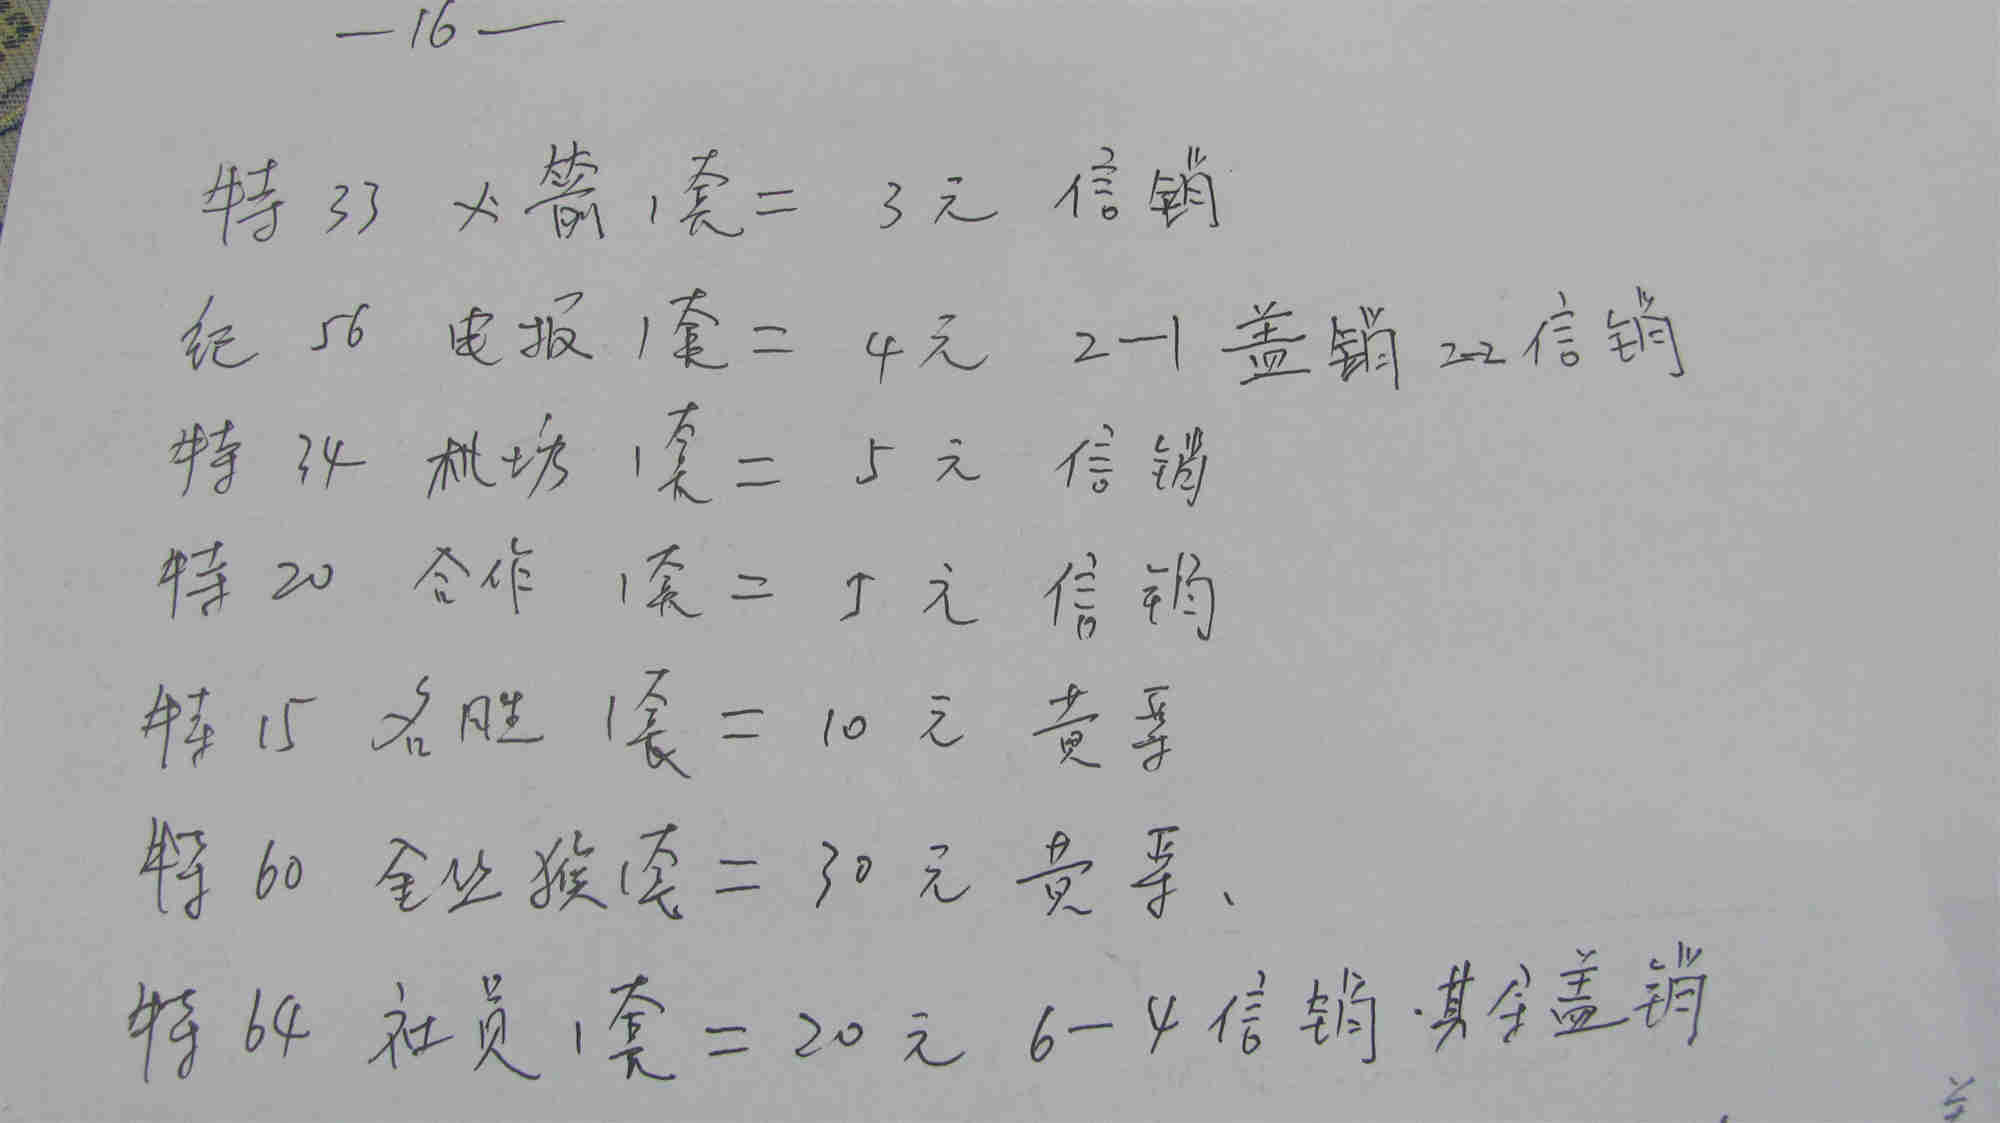 —16—
特33 火箭 1套 = 3元 信销
纪56 电报 1套 = 4元 2-1 盖销 2-2 信销
特34 机场 1套 = 5元 信销
特20 合作 1套 = 5元 信销
特15 名胜 1套 = 10元
特60 金丝猴 1套 = 30元
特64 社员 1套 = 20元 6-4 信销.其余盖销